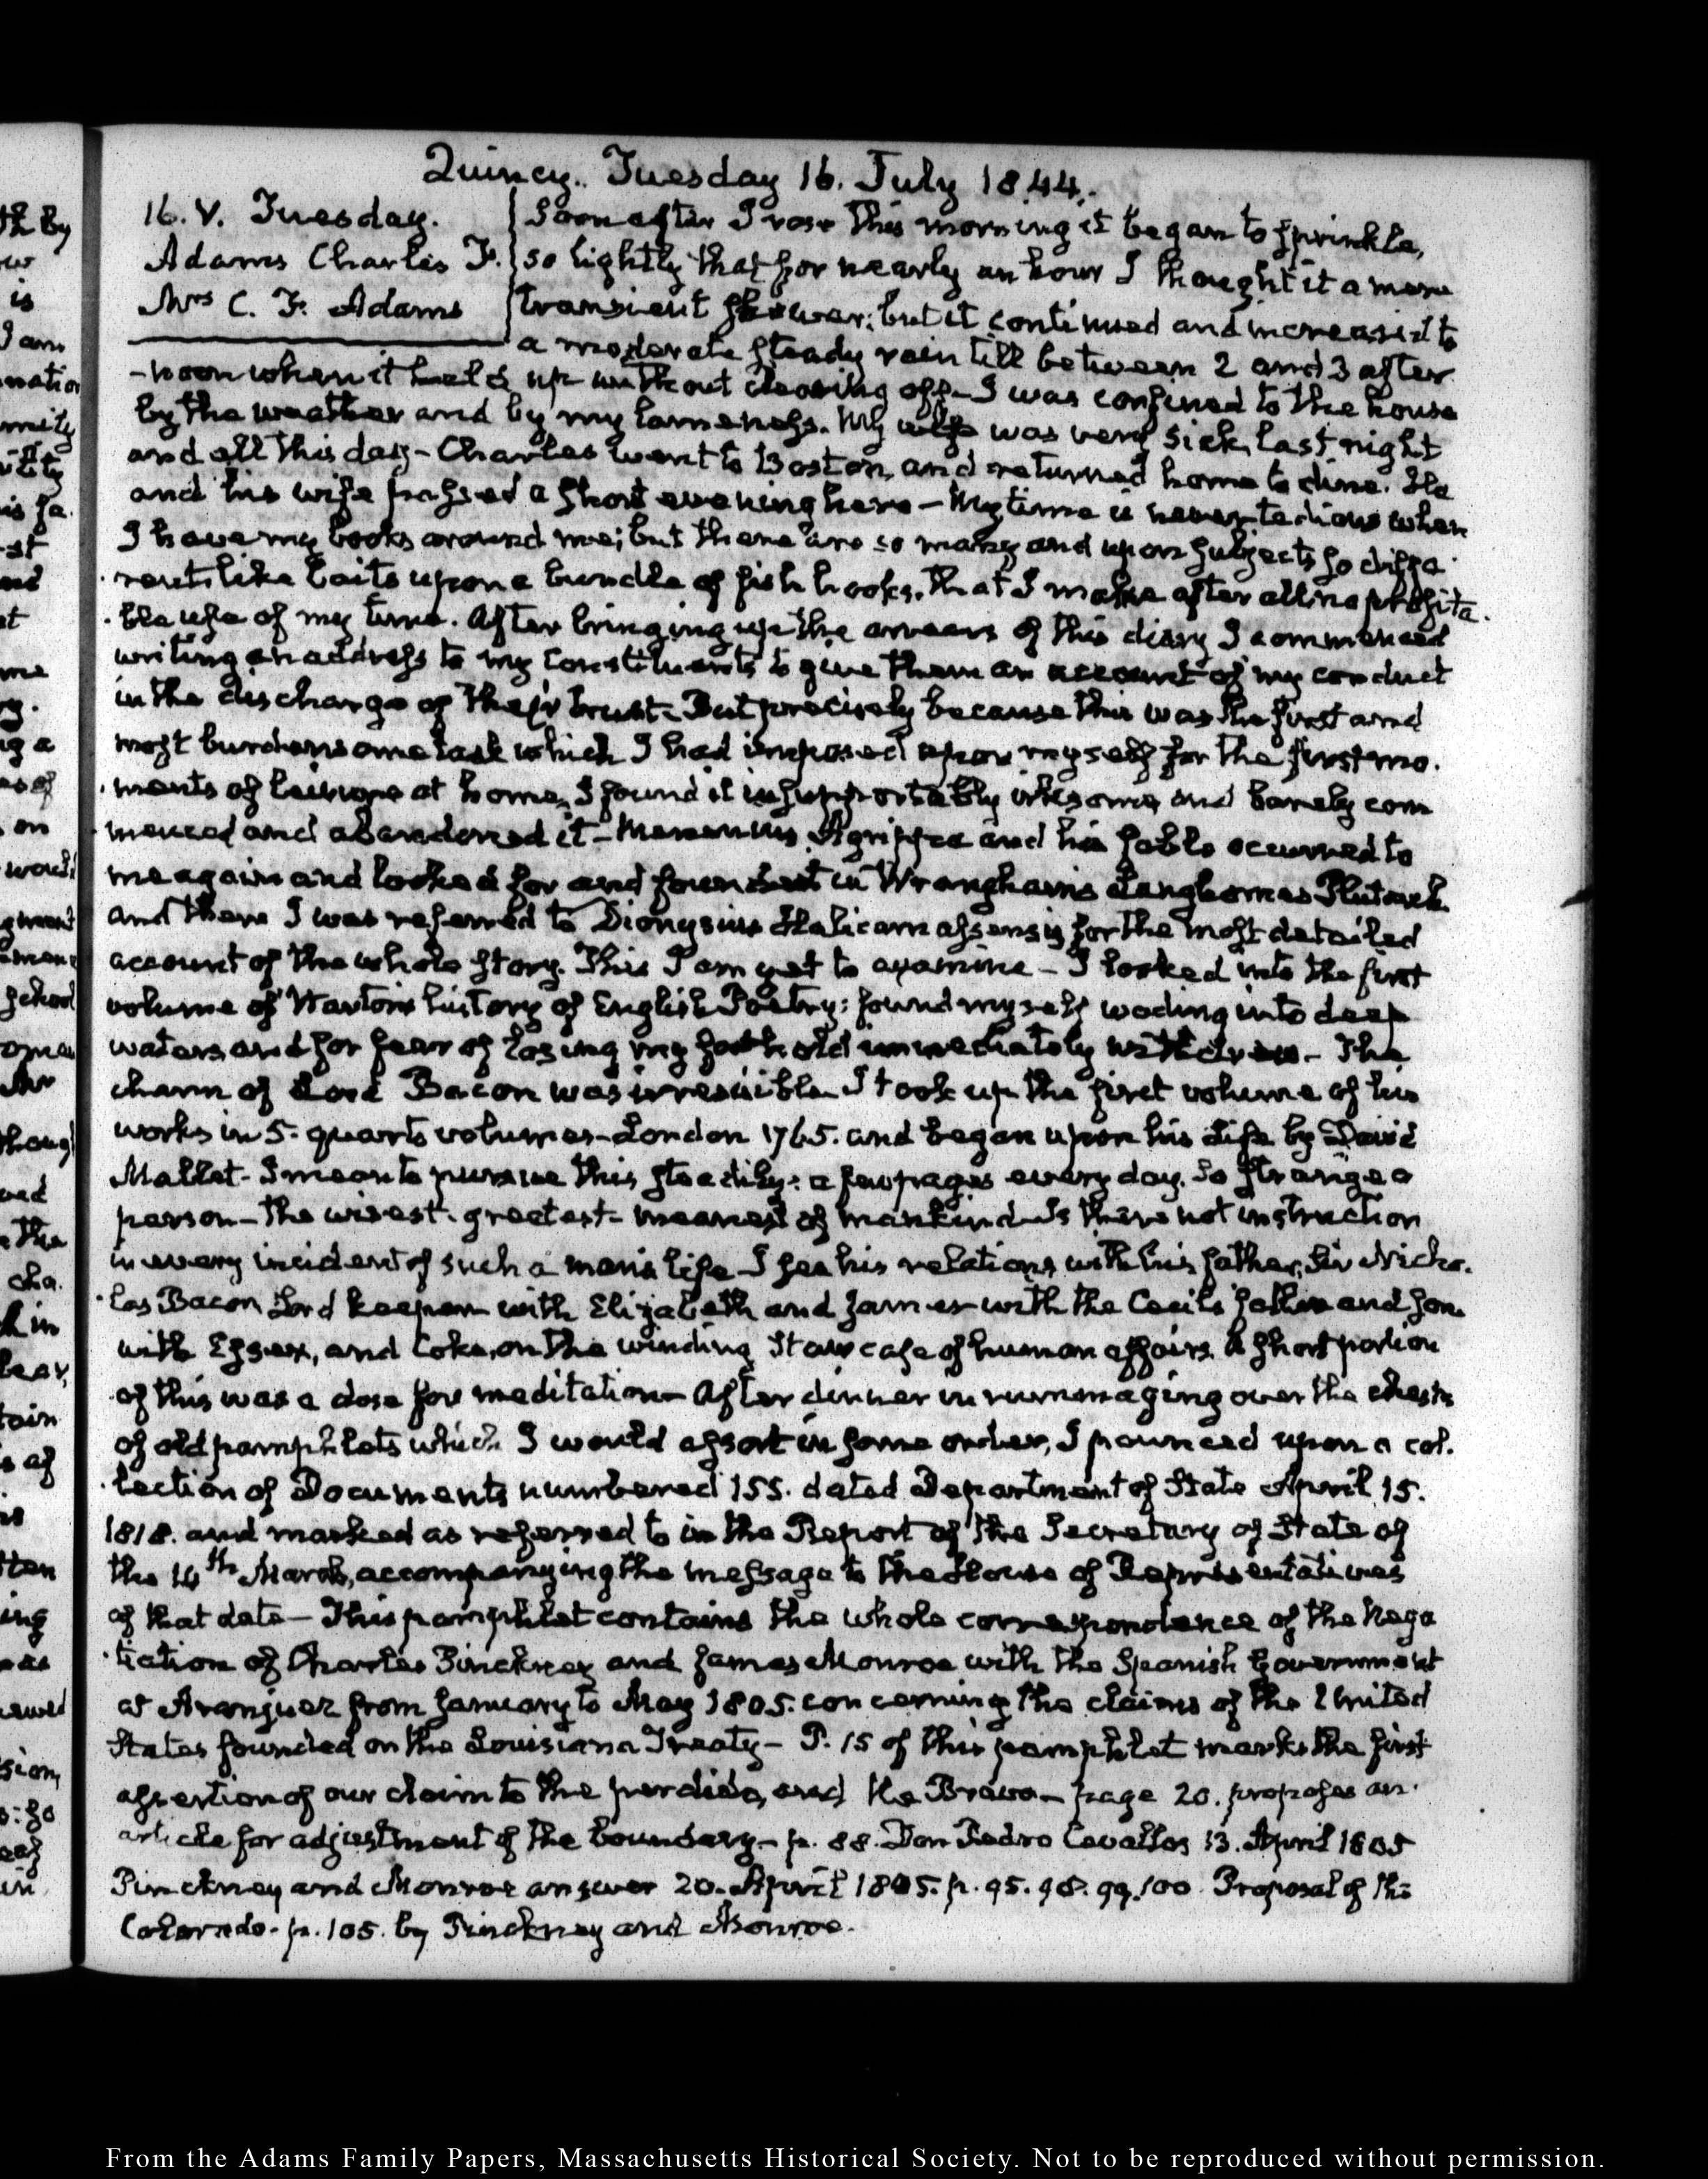 Quincy. Tuesday 16. July 1844.
16. V. Tuesday.
Adams Charles F.
Mrs C. F. Adams
Soon after I rose this morning it began to sprinkle,
so lightly that for nearly an hour I thought it a mere
transient shower; but it continued and increased to
a moderate steady rain till between 2 and 3 after
-noon when it held up without clearing off- I was confined to the house
by the weather and by my lameness. My wife was very sick, last night
and all this day- Charles went to Boston, and returned home to dine. He
and his wife passed a short evening here- My time is never tedious when
I have my books around me; but there are so many and upon subjects so diffe-
rent, like baits upon a bundle of fish hooks, that I make after all no profita-
ble use of my time. After bringing up the arrears of this diary I commenced
writing an address to my Constituents to give them an account of my conduct
in the discharge of their trust- But precisely because this was the first and
most burdensome task which I had imposed upon myself for the first mo-
ments of leisure at home, I found it insupportably irksome, and barely com
menced and abandoned it- Menenius Agrippa and his fable occurred to
me again and looked for and found it in Wrangham's Langhornes Plutarch.
and there I was referred to Dionysius Halicarnassensis for the most detailed
account of the whole story. This I am yet to examine- I looked into the first
volume of Warton's history of English Poetry; found myself wading into deep
waters and for fear of losing my foothold immediately withdrew- The
charm of Lord Bacon was irresistible- I took up the first volume of his
works in 5. quarto volumes- London 1765. and began upon his Life by David
Mallet- I mean to pursue this steadily: a few pages every day. So strange a
person- The wisest- greatest- meanest of mankind- Is there not instruction
in every incident of such a man's life- I see his relations with his father, Sir Nicho-
las Bacon Lord keeper- with Elizabeth and James- with the Cecils father and son-
with Essex, and Coke, on the winding Stair case of human affairs. A short portion
of this was a dose for meditation- After dinner in rummaging over the chests
of old pamphlets which I would assort in some order, I pounced upon a col-
lection of Documents numbered 155. dated Department of State April 15.
1818. and marked as referred to in the Report of the Secretary of State of
the 14th March, accompanying the message to the House of Representatives
of that date- This pamphlet contains the whole correspondence of the Nego
tiation of Charles Pinckney and James Monroe with the Spanish Government
at Aranjuez from January to May 1805. concerning the claims of the United
States founded on the Louisiana Treaty- P. 15 of this pamphlet marks the first
assertion of our claim to the perdido, and the Bravo- page 20. proposes an
article for adjustment of the boundary- p. 88. Don Pedro Cevallos 13. April 1805
Pinckney and Monroe answer 20. April 1805. p. 95. 98. 99. 100 Proposal of the
Colorado- p. 105. by Pinckney and Monroe.
From the Adams Family Papers, Massachusetts Historical Society. Not to be reproduced without permission.